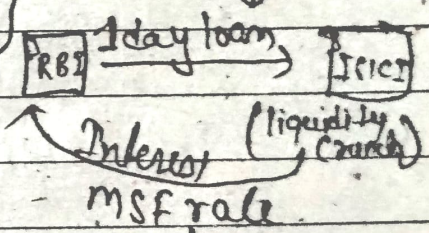 1 day loan
RBI
ICICI
(liquidity
crunch)
Interest
MSF rate